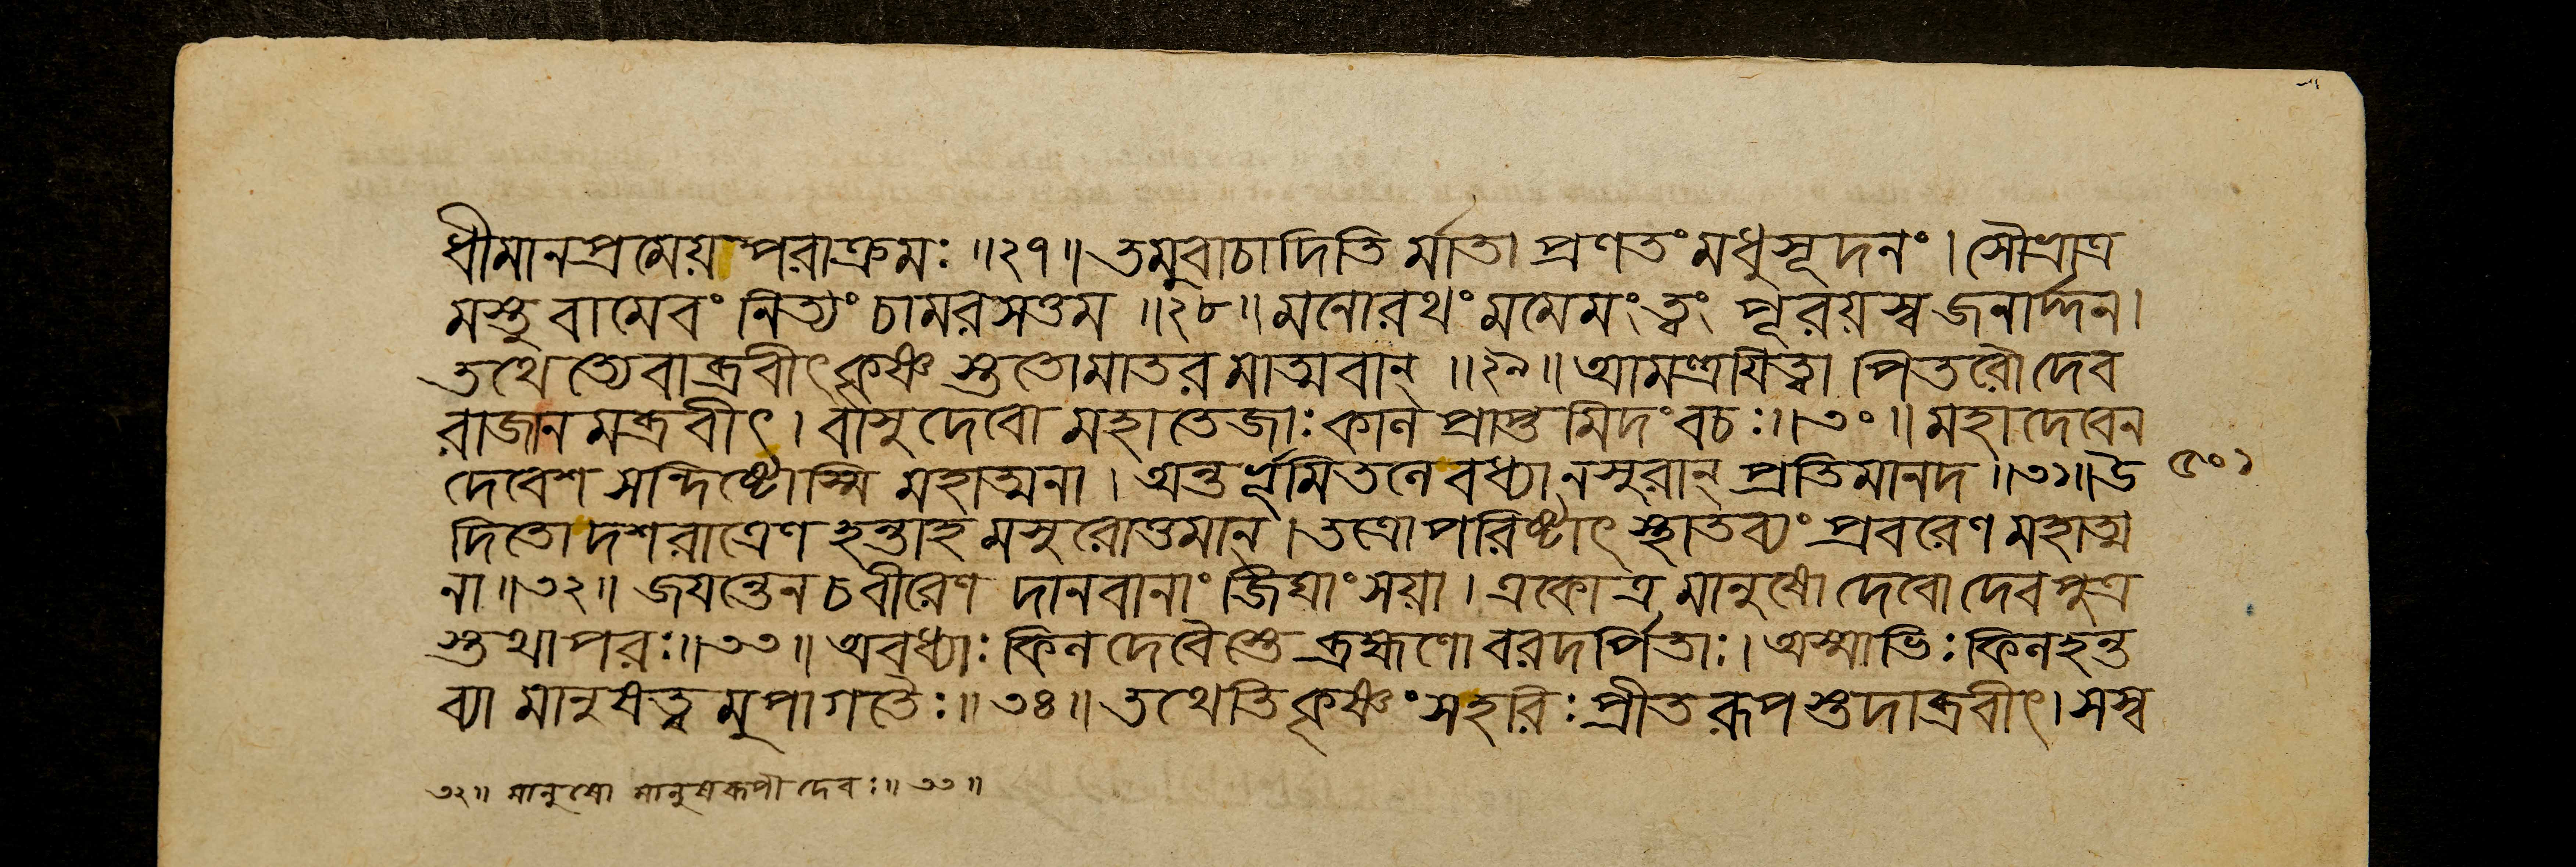 ধীমানপ্রমেয়পরাক্রমঃ ॥২৭॥ তমুবাচাদিতি র্মাতা প্রণতং মধুসূদনং । সৌভ্রাত্র
মস্তু বামেবং নিত্যং চামরসত্তম ॥২৮॥ মনোরথং মমেমং ত্বং পূরয়স্ব জনার্দ্দন।
তথেত্যেবাব্রবীৎ কৃষ্ণ স্তুতোমাতর মাত্মবান্ ॥২৯॥ আমন্ত্রযিত্বা পিতরৌ দেব
রাজান মব্রবীৎ । বাসুদেবো মহাতেজাঃ কালপ্রাপ্তমিদং বচঃ॥৩০॥ মহাদেবেন
দেবেশ সন্দিষ্টোস্মি মহাত্মনা । অন্তর্ভূমিতলে বধ্যানসুরান্ প্রতিমানদ ॥৩১॥ উ ৫০১
দিতো দশরাত্রেণ হন্তাহ মসুরোত্তমান্ । তত্রোপরিষ্টাৎ স্থাতব্যং প্রবরেণ মহাত্ম
না ॥৩২॥ জযন্তেন চ বীরেণ দানবানাং জিঘাংসয়া । একোত্র মানুষো দেবো দেবপুত্র
স্তথাপরঃ॥৩৩॥ অবধ্যাঃ কিল দেবৈস্তে ব্রহ্মণো বরদর্পিতাঃ । অস্মাভিঃ কিল হন্ত
ব্যা মানুষত্বমুপাগতৈঃ॥৩৪॥ তথেতি কৃষ্ণং স হরিঃ প্রীতরূপ স্তদাব্রবীৎ । সস্ব
৩২॥ মানুষো মানুষরূপী দেবঃ॥৩৩॥